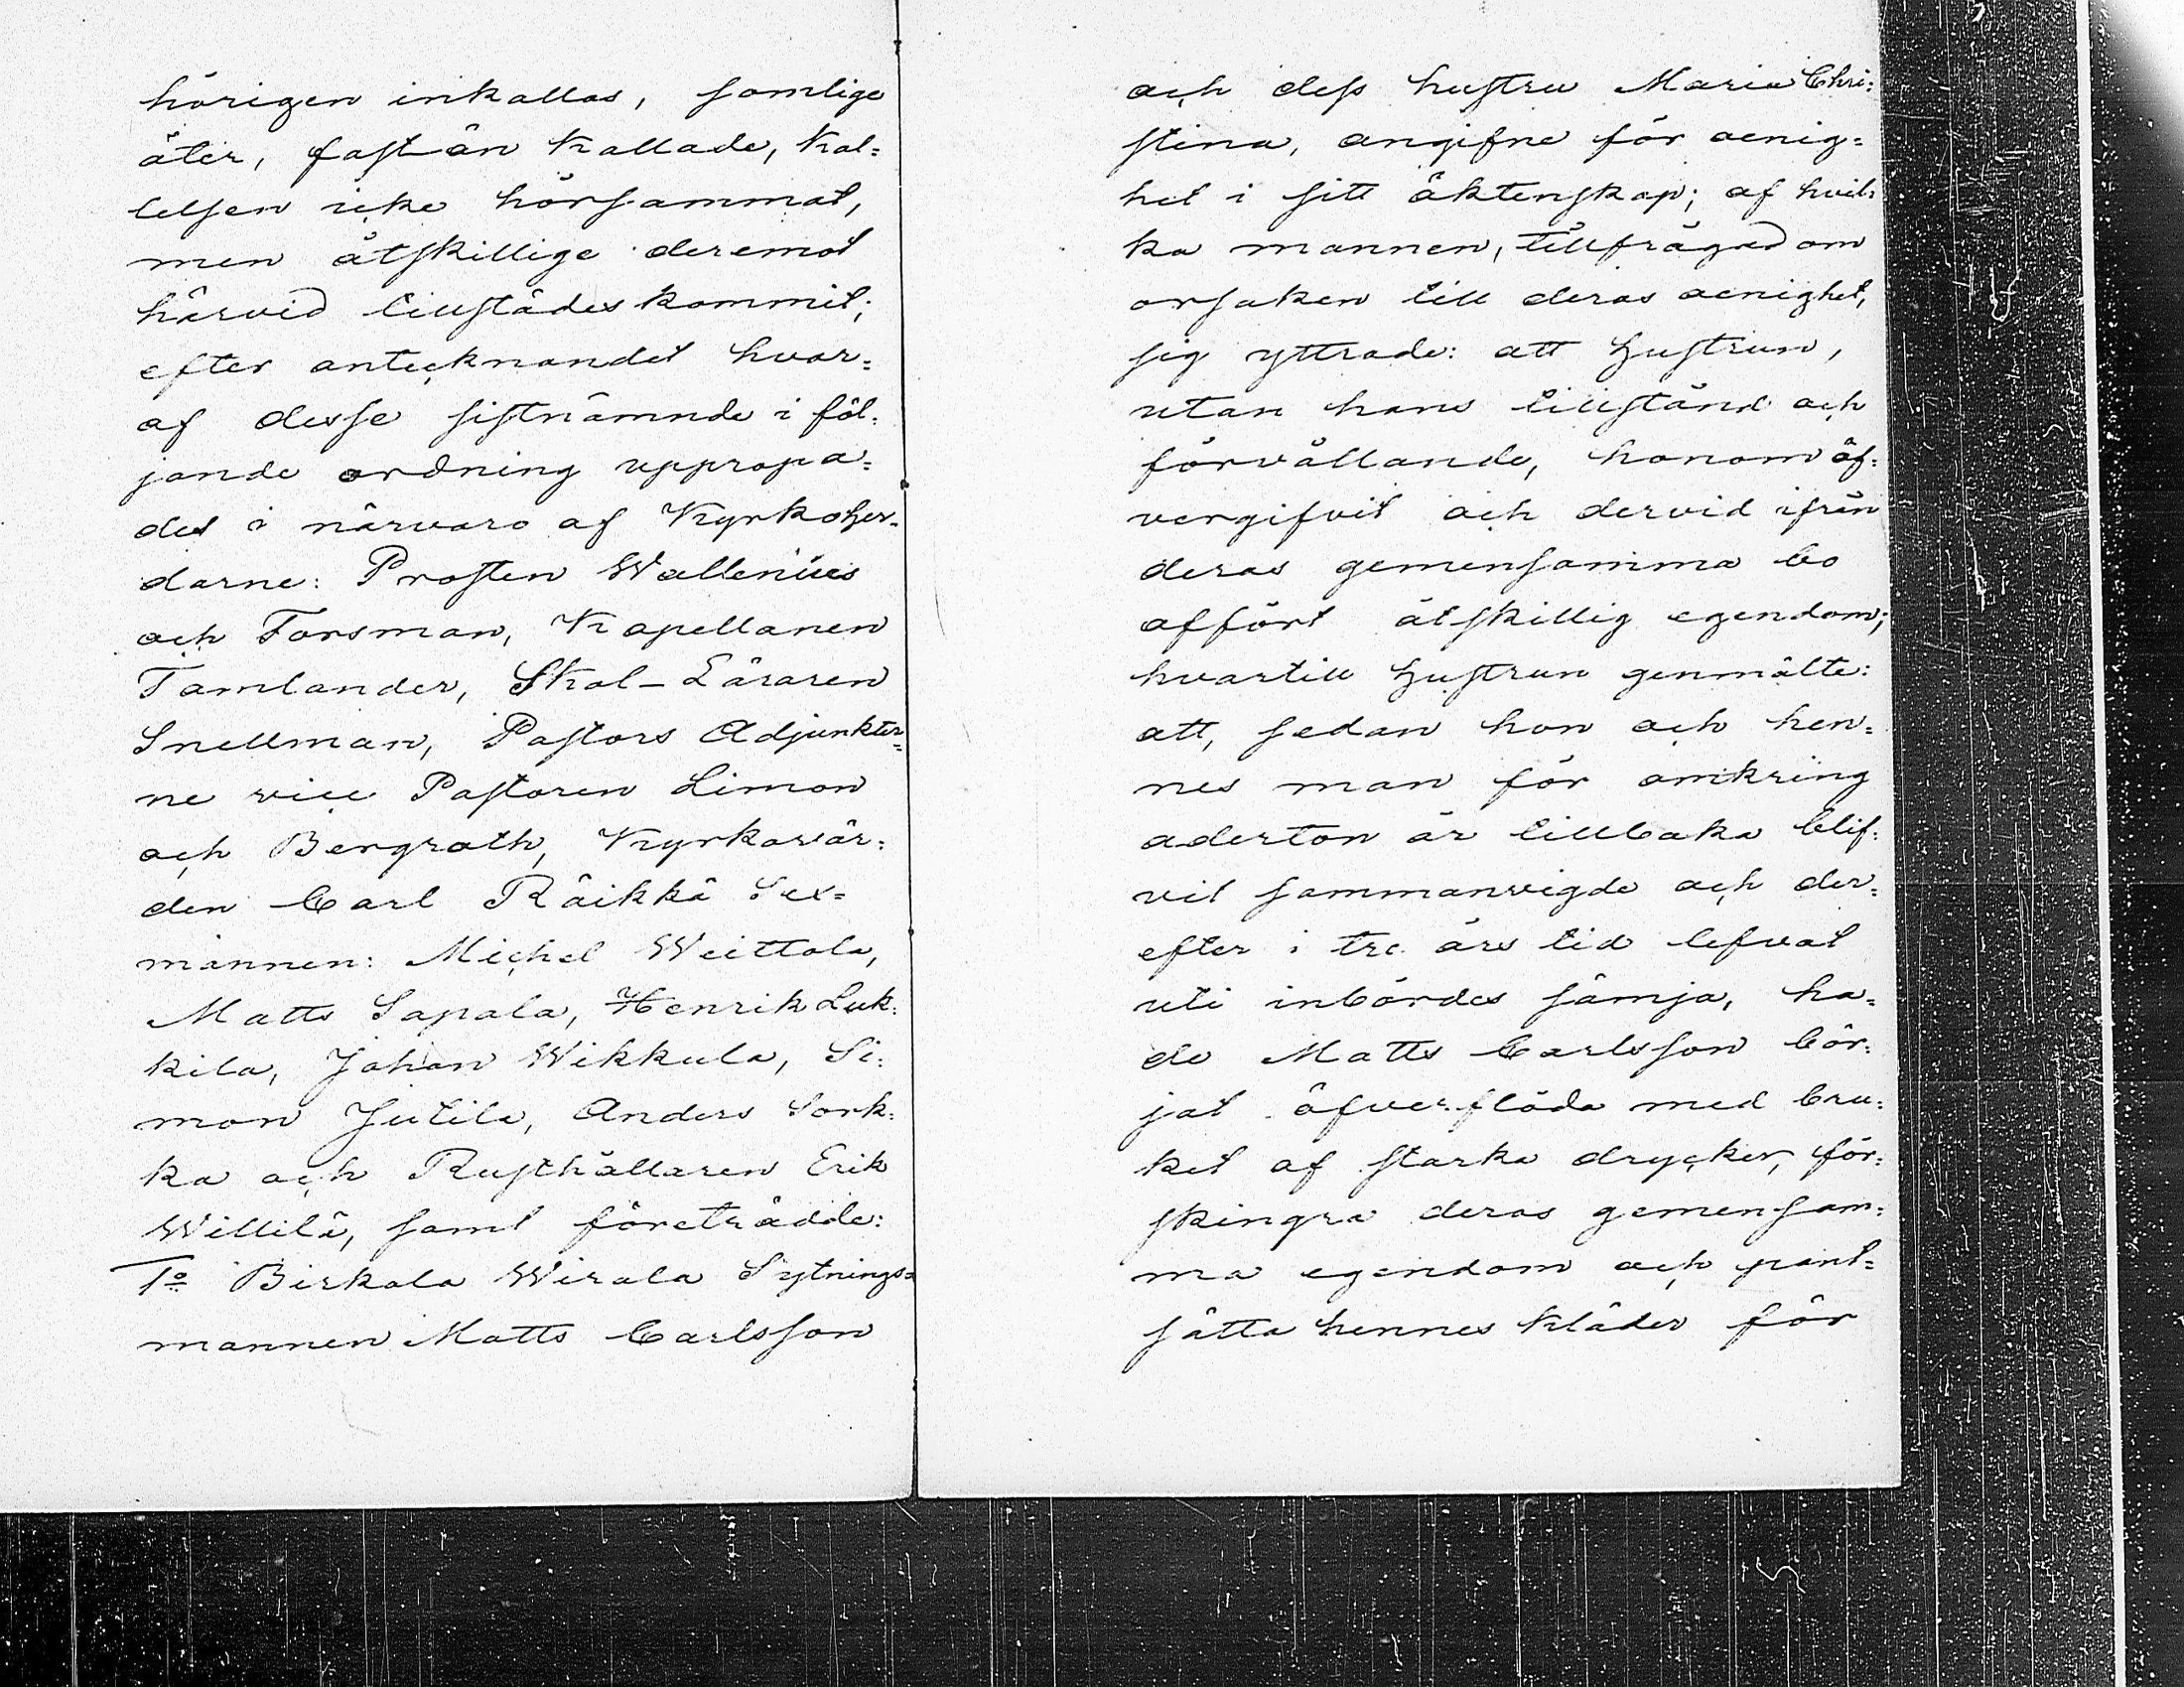 hörigen inkallas, somlige
åter, fast än kallade, kal=
lelsen icke hörsammat,
men åtskillige deremot
härvid tillstädes kommit;
efter antecknandet hvar=
af desse sistnämnde i föl=
jande ordning uppropa=
des i närvaro af Kyrkoher=
darne: Prosten Wallenius
och Forsman, Kapellanen
Tamlander, Skol-Läraren
Snellman, Pastors Adjunkter=
ne vice Pastoren Limon
och Bergroth, Kyrkovär=
den Carl Räikkä Sex=
männen: Michel Weittola,
Matts Sapala, Henrik Luk=
kila, Johan Wikkula, Si=
mon Jutila, Anders Sork=
ka och Rusthållaren Erik
Willilä, samt företrädde:
1o Birkala Wirala Sytnings=
mannen Matts Carlsson
och dess hustru Maria Chri=
stina, angifne för oenig=
het i sitt äktenskap; af hvil=
ka mannen, tillfrågad om
orsaken till deras oenighet,
sig yttrade: att Hustrun,
utan hans tillstånd och
förvållande, honom öf=
vergifvit och dervid ifrån
deras gemensamma bo
affört åtskillig egendom;
hvartill Hustrun genmälte:
att, sedan hon och hen=
nes man för omkring
aderton år tillbaka blif=
vit sammanvigde och der=
efter i tre års tid lefvat
uti inbördes sämja, ha=
de Matts Carlsson bör=
jat öfverflöda med bru=
ket af starka drycker, för=
skingra deras gemensam=
ma egendom och pant=
sätta hennes kläder för